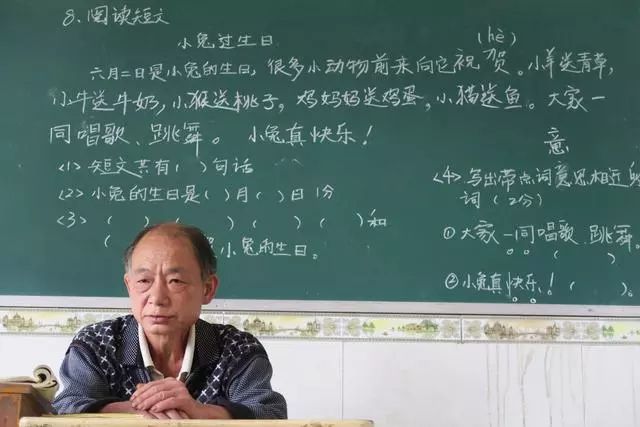 8. 阅读短文
小兔过生日
(hè)
六月二日是小兔的生日,很多小动物前来向它祝贺。小羊送青草,
小牛送牛奶,小猴送桃子,鸡妈妈送鸡蛋,小猫送鱼。大家一
同唱歌、跳舞。 小兔真快乐!
<1> 短文共有( )句话
<2> 小兔的生日是( )月( )日 1分
<3> ( ) ( ) ( ) ( ) ( )和
( 小兔的生日。
意
<4> 写出带点词意思相近的
词(2分)
① 大家一同唱歌、跳舞。
( )
② 小兔真快乐!( )。